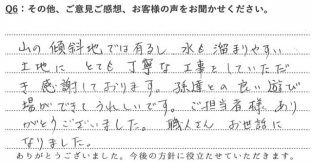 Q6：その他、ご意見ご感想、お客様の声をお聞かせください。
山の傾斜地では有るし 水も溜まりやすい
土地に とても 丁寧な 工事をしていただ
き 感謝しております。孫達との良い遊び
場ができて うれしいです。ご担当者様、あり
がとうございました。 職人さん お世話に
なりました。
ありがとうございました。今後の方針に役立たせていただきます。